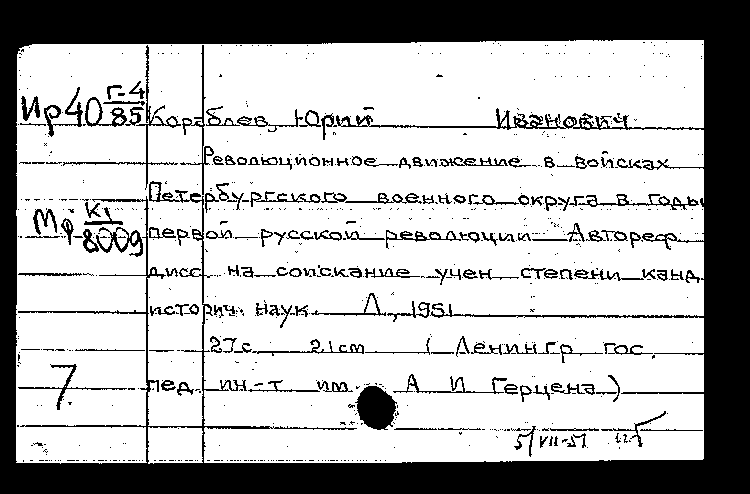 Ир40 Г-4/85 Кораблев, Юрий Иванович
Революционное движение в войсках
Петербургского военного округа в годы
Мф К1/8009 первой русской революции. Автореф.
дисс. на соискание учен степени канд.
историч. наук. Л., 1951
27с. 21cm (Ленингр. гос.
7 пед. ин-т им. А И Герцена)
5/VII-51